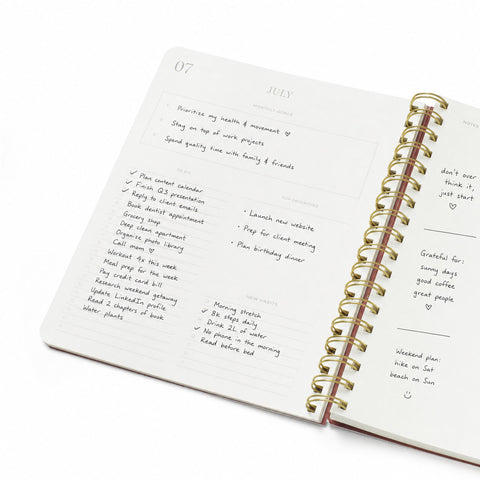 07
JULY
MONTHLY GOALS
Prioritize my health & movement ♡
Stay on top of work projects
Spend quality time with family & friends
TO DO
✓ Plan content calendar
✓ Finish Q3 presentation
✓ Reply to client emails
Book dentist appointment
Grocery shop
Deep clean apartment
Organize photo library
Call mom ♡
Workout 4x this week
Meal prep for the week
Pay credit card bill
Research weekend getaway
Update LinkedIn profile
Read 2 chapters of book
Water plants
• Launch new website
• Prep for client meeting
• Plan birthday dinner
NEW HABITS
Morning stretch
✓ 8k steps daily
✓ Drink 2L of water
✓ No phone in the morning
Read before bed
NOTES
don't over
think it,
just start
♡
Grateful for:
sunny days
good coffee
great people
♡
Weekend plan:
hike on Sat
beach on Sun
☺